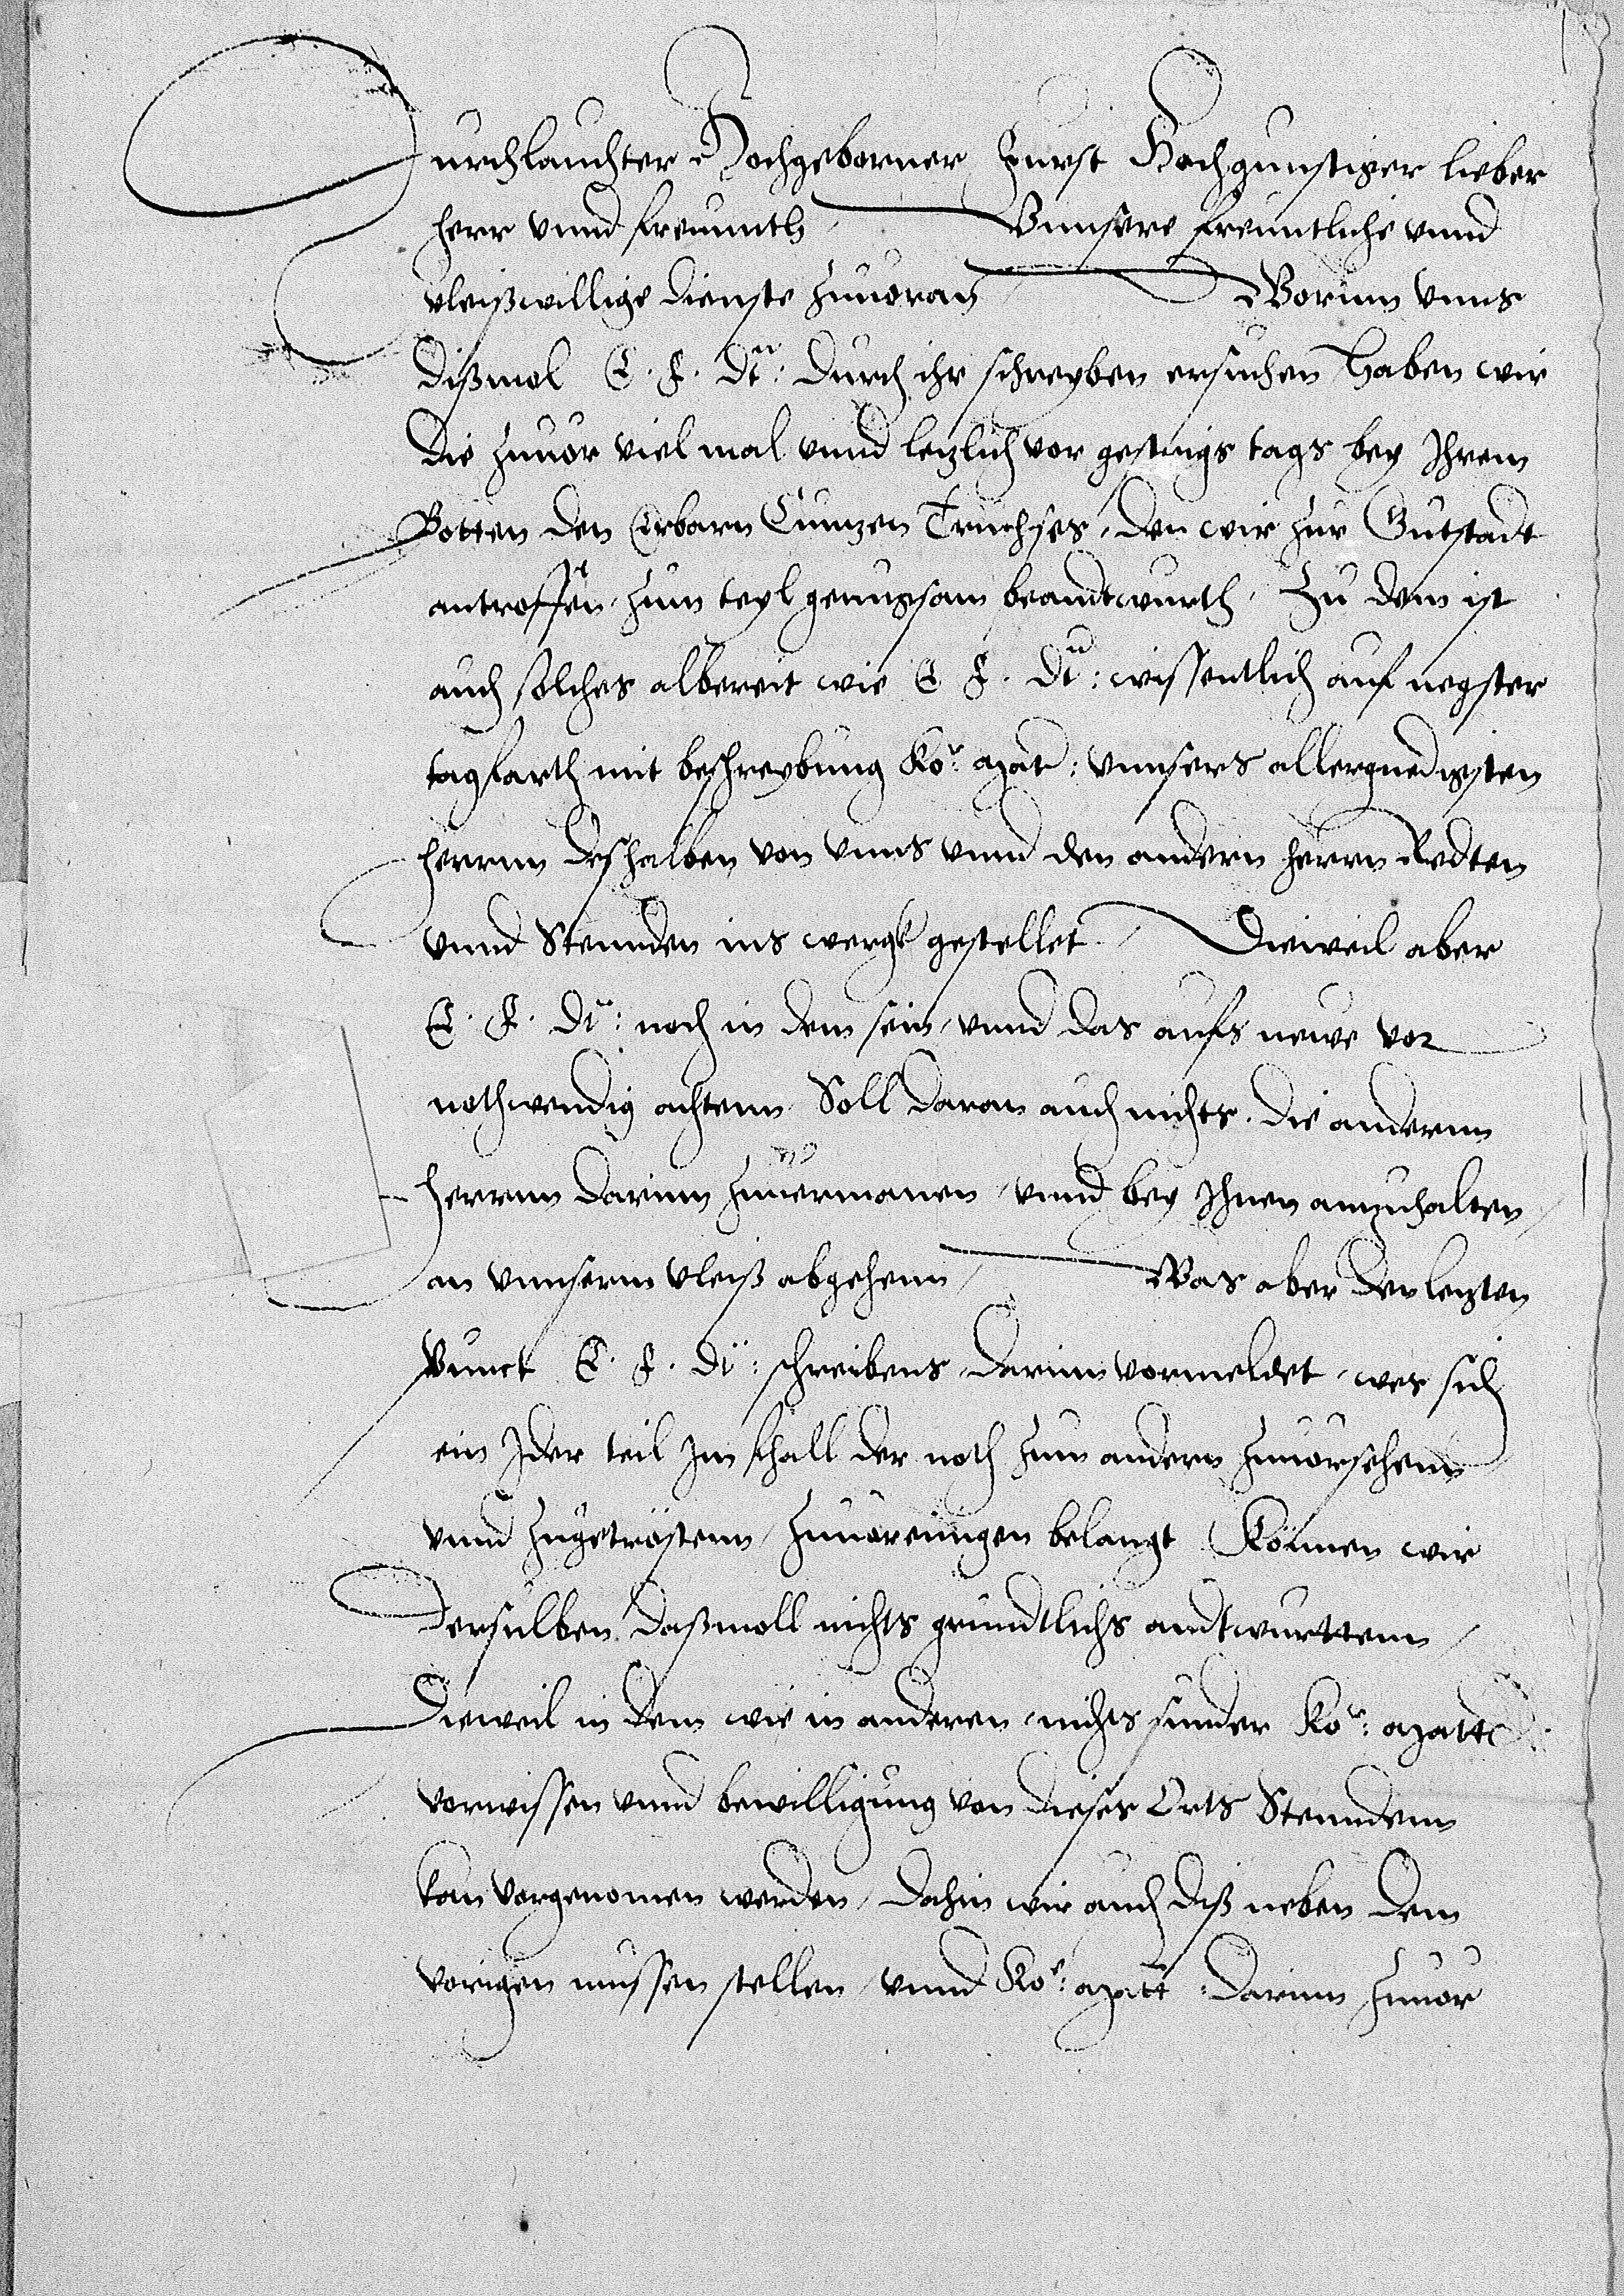 Durchlauchter Hochgeborner Furst Hochgunstiger lieber
herr vnnd freunnth Vnnsere freuntliche vnnd
vleißwillige dienste zuuoran Worum vnns
dißmol E. F. Dt: durch ihr schreyben ersuchen haben wir
die zuuor viel mal vnnd lezlich vor gestrigs tags bey Ihrem
Botten den Erbarn Cunzen Truchses, den wir zur Gutstadt
antroffen, zum teyl genugsam beandtwurth, Zu dem ist
auch solches albereit wie E F. Dt: wissentlich auf negster
tagfarth mit beschreybung Ko: Mat: vnnsers allergnedigsten
herrnn deshalben von vnns vnnd den andern herrn Redten
vnnd Stennden ins wergk gestellet. Dieweil aber
E. F. Dt: noch in dem sein, vnnd das aufs newe vor
nothwendig achtenn Soll daran auch nichts. die anderenn
herrnn darinn zuuermanen, vnnd bey Ihnen anzuhalten,
an vnnserm vleiß abgehenn, Was aber den lezten
Punct E. F. Dt: schreibens, darinn vormeldet, wes sich
ein Jder teil Im fhall der noth zum andern zuuorsehenn
vnnd zugetröstenn, zuuoreinigen belangt Können wir
derselben daßmoll nichts grundtlichs andtwurttenn,
Dieweil in dem wie in anderen, nichts sunder Ko: Matt
vorwissen vnnd bewilligung von dieses Orts Stenndenn
kan vorgenomen werden, Dohin wir auch diß neben dem
vorigen mussen stellen, vnnd Ko: Matt: darinn zuuor